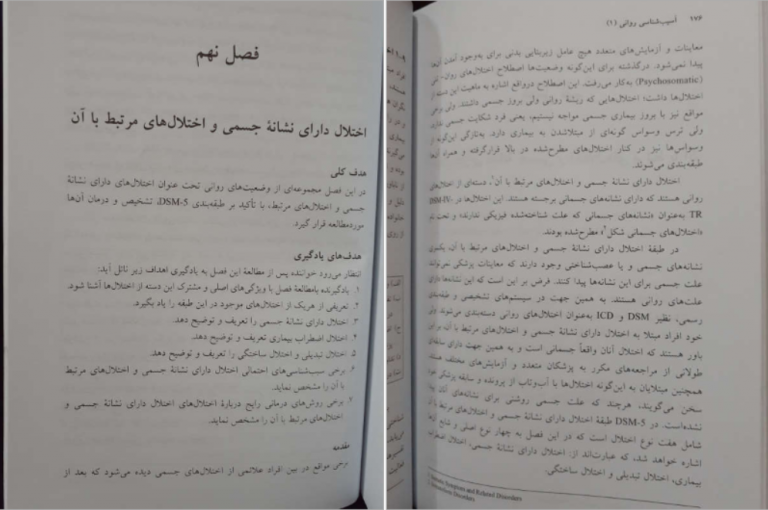 فصل نهم
اختلال دارای نشانهٔ جسمی و اختلال‌های مرتبط با آن
هدف کلی
در این فصل مجموعه‌ای از وضعیت‌های روانی تحت عنوان اختلال‌های دارای نشانهٔ
جسمی و اختلال‌های مرتبط، با تأکید بر طبقه‌بندی DSM-5، تشخیص و درمان آن‌ها
موردمطالعه قرار گیرد.
هدف‌های یادگیری
انتظار می‌رود خواننده پس از مطالعهٔ این فصل به یادگیری اهداف زیر نائل آید:
۱. یادگیرنده بامطالعهٔ فصل با ویژگی‌های اصلی و مشترک این دسته از اختلال‌ها آشنا شود.
۲. تعریفی از هریک از اختلال‌های موجود در این طبقه را یاد بگیرد.
۳. اختلال دارای نشانهٔ جسمی را تعریف و توضیح دهد.
۴. اختلال اضطراب بیماری تعریف و توضیح دهد.
۵. اختلال تبدیلی و اختلال ساختگی را تعریف و توضیح دهد.
۶. برخی سبب‌شناسی‌های احتمالی اختلال دارای نشانهٔ جسمی و اختلال‌های مرتبط
با آن را مشخص نماید.
۷. برخی روش‌های درمانی رایج دربارهٔ اختلال‌های اختلال دارای نشانهٔ جسمی و
اختلال‌های مرتبط با آن را مشخص نماید.
مقدمه
برخی مواقع در بین افراد علائمی از اختلال‌های جسمی دیده می‌شود که بعد از
۱۷۶ آسیب‌شناسی روانی (۱)
معاینات و آزمایش‌های متعدد هیچ عامل زیربنایی بدنی برای به‌وجود آمدن آن‌ها
پیدا نمی‌شود. درگذشته برای این‌گونه وضعیت‌ها اصطلاح اختلال‌های روان‌تنی
(Psychosomatic) به‌کار می‌رفت. این اصطلاح درواقع اشاره به ماهیت این دسته از
اختلال‌ها داشت؛ اختلال‌هایی که ریشهٔ روانی ولی بروز جسمی داشتند. ولی برخی
مواقع نیز با بروز بیماری جسمی مواجه نیستیم، یعنی فرد شکایت جسمی ندارد،
ولی ترس وسواس گونه‌ای از مبتلاشدن به بیماری دارد. به‌تازگی این‌گونه از
وسواس‌ها نیز در کنار اختلال‌های مطرح‌شده در بالا قرارگرفته و همرد آن‌ها
طبقه‌بندی می‌شوند.
اختلال دارای نشانهٔ جسمی و اختلال‌های مرتبط با آن¹، دسته‌ای از اختلال‌های
روانی هستند که دارای نشانه‌های جسمانی برجسته هستند. این اختلال‌ها در DSM-IV-
TR به‌عنوان «نشانه‌های جسمانی که علت شناخته‌شده فیزیکی ندارند» و تحت نام
«اختلال‌های جسمانی شکل²» مطرح‌شده بودند.
در طبقهٔ اختلال دارای نشانهٔ جسمی و اختلال‌های مرتبط با آن، یکسری
نشانه‌های جسمی و یا عصب‌شناختی وجود دارند که معاینات پزشکی نمی‌تواند
علت جسمی برای این نشانه‌ها پیدا کنند. فرض بر این است که این نشانه‌ها دارای
علت‌های روانی هستند. به همین جهت در سیستم‌های تشخیصی و طبقه‌بندی
رسمی، نظیر DSM و ICD به‌عنوان اختلال‌های روانی دسته‌بندی می‌شوند ولی
خود افراد مبتلا به اختلال دارای نشانهٔ جسمی و اختلال‌های مرتبط با آن، بر این
باور هستند که اختلال آنان واقعاً جسمانی است و به همین جهت دارای سابقه‌ای
طولانی از مراجعه‌های مکرر به پزشکان متعدد و آزمایش‌های مختلف هستند.
همچنین مبتلایان به این‌گونه اختلال‌ها با آب‌وتاب از پرونده و سابقه پزشکی خود
سخن می‌گویند، هرچند که علت جسمی روشنی برای نشانه‌های آنان پیدا
نشده‌است. در DSM-5 طبقهٔ اختلال دارای نشانهٔ جسمی و اختلال‌های مرتبط با آن
شامل هفت نوع اختلال است که در این فصل به چهار نوع اصلی و شایع آن‌ها
اشاره خواهد شد، که عبارت‌اند از: اختلال دارای نشانهٔ جسمی، اختلال اضطراب
بیماری، اختلال تبدیلی و اختلال ساختگی.
Symptoms and Related Disorders
Disorders